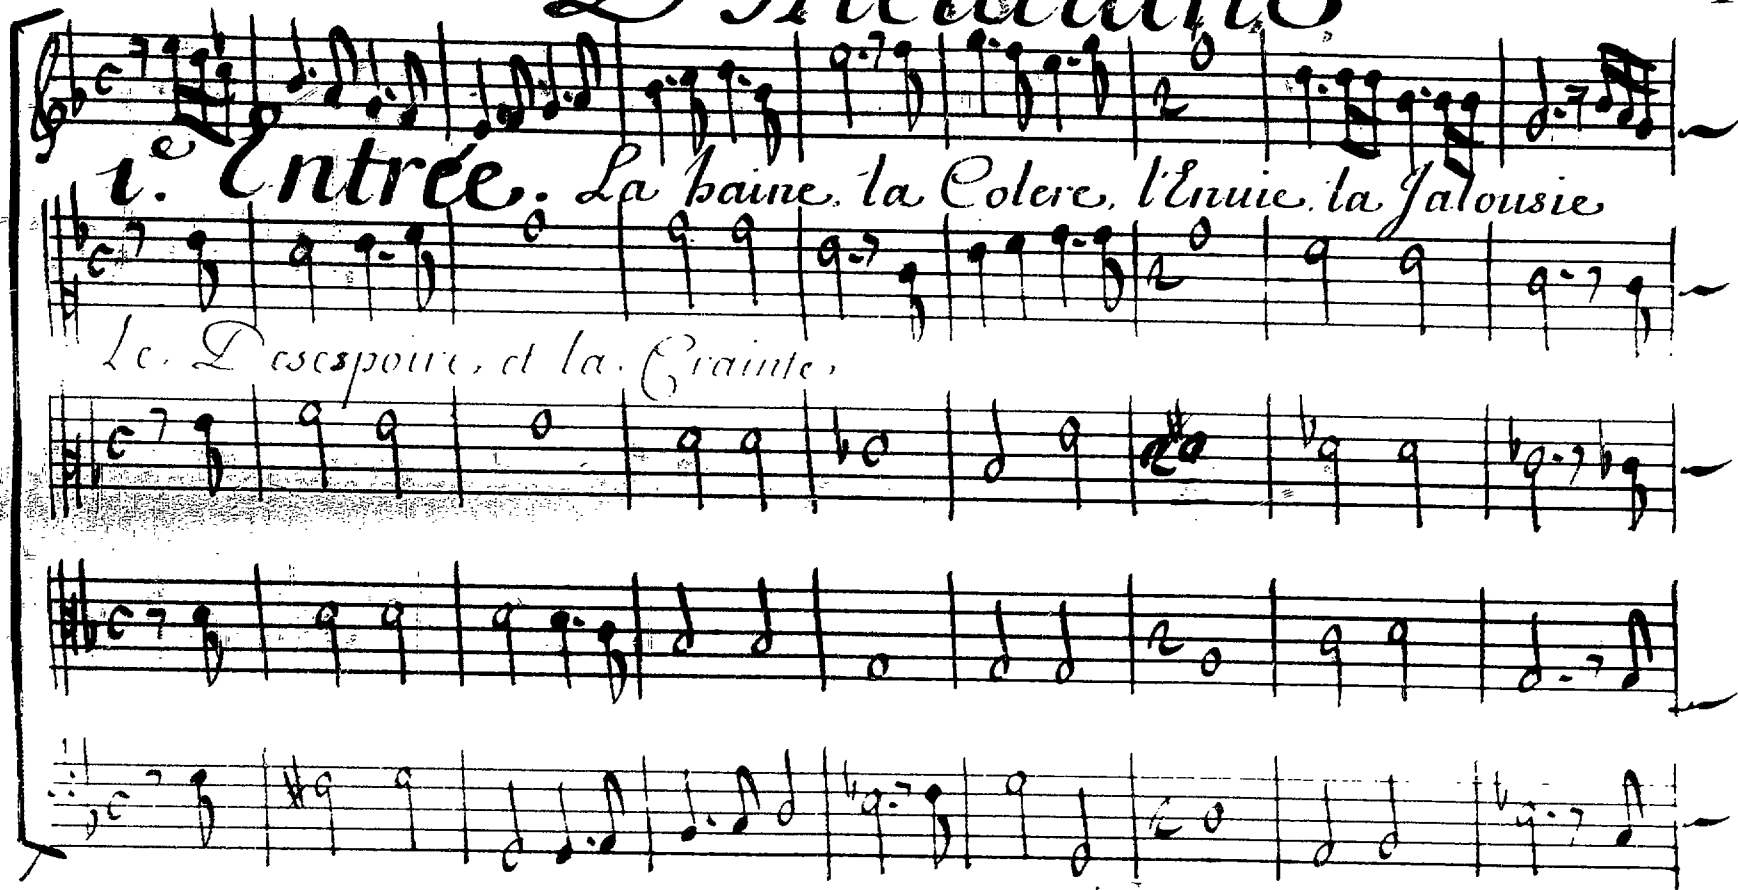 1.e Entrée. La haine, la Colere, l'Enuie, la Jalousie
Le Desespoire, et la Crainte,